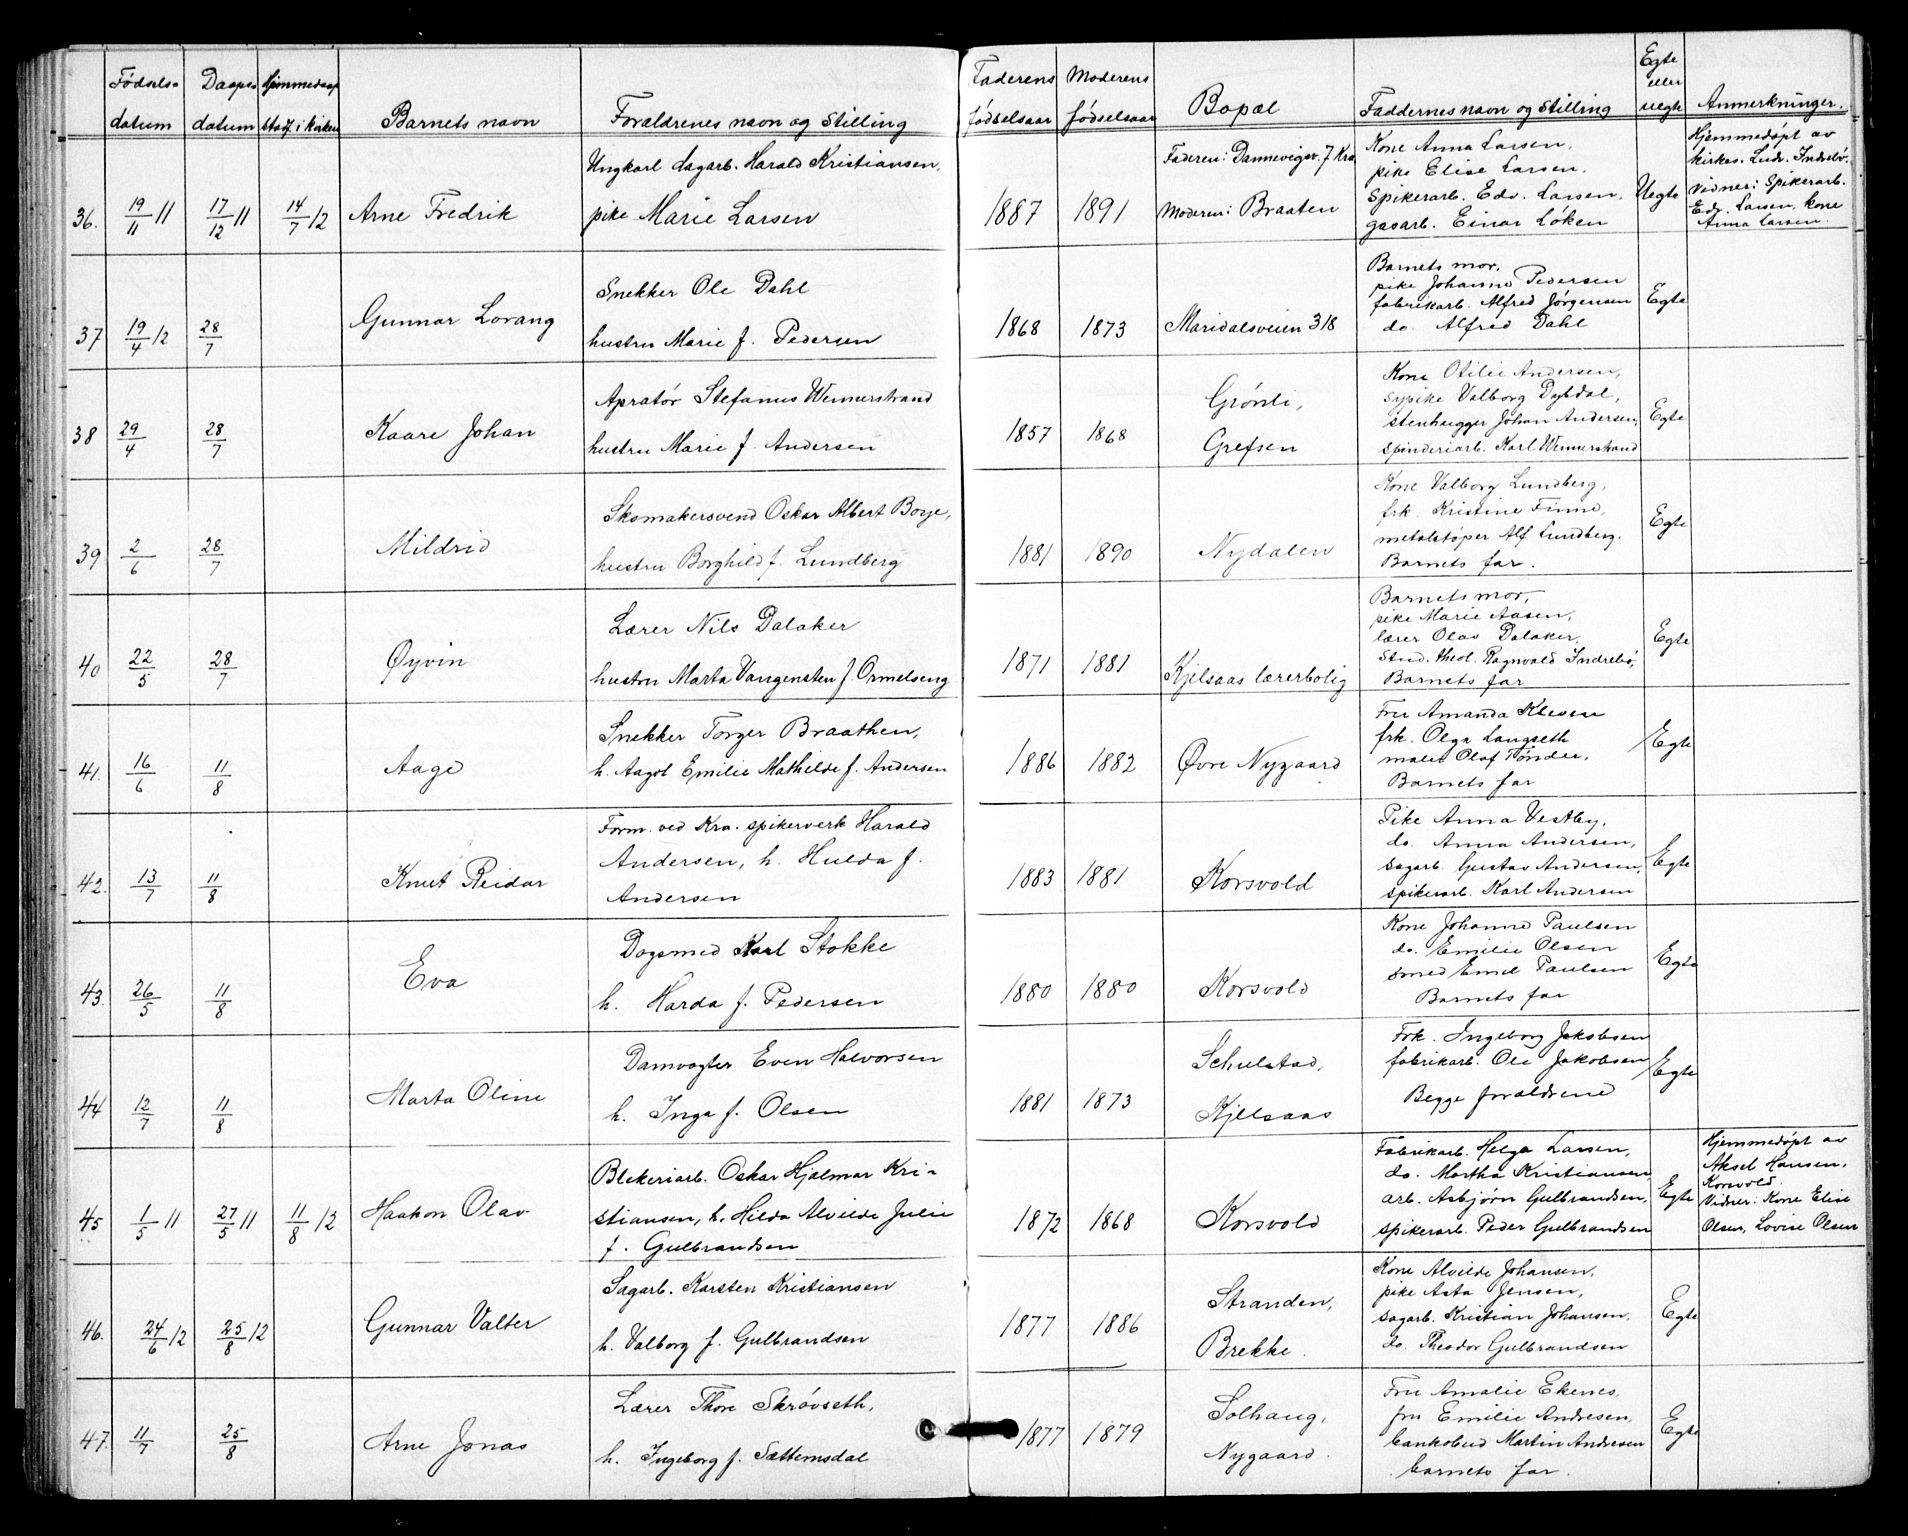 Fødsels- Daaps- Hjemmedaap Faderens Moderens Egte eller
datum datum stadf. i kirken Barnets navn Forældrenes navn og Stilling fødselsaar fødselsaar Bopæl Faddernes navn og Stilling uegte Anmerkninger.
Ungkarl dagarb. Harald Kristiansen, Faderen: Dannevigsv. 7 Kra. Kone Anna Larsen, Hjemmedøpt av
pike Elise Larsen, kirkes. Ludv. Indrebø.
36. 19/11 11 17/12 11 14/7 12 Arne Fredrik pike Marie Larsen 1887 1891 Moderen: Braaten Spikerarb. Edv. Larsen, Uegte Vidner: Spikerarb.
gasarb. Einar Løken Edv. Larsen, kone
Anna Larsen.
Snekker Ole Dahl Barnets mor,
pike Johanne Pedersen
37 19/4 12 28/7 Gunnar Lorang hustru Marie f. Pedersen 1868 1873 Maridalsveien 318 fabrikarb. Alfred Jørgensen Egte
do. Alfred Dahl
Apratør Stefanus Wennerstrand Grønli, Kone Otilie Andersen,
sypike Valborg Dybdal,
38 29/4 28/7 Kaare Johan hustru Marie f. Andersen 1857 1868 Grefsen stenhugger Johan Andersen, Egte
spinderiarb. Karl Wennerstrand
Skomakersvend Oskar Albert Borge, Kone Valborg Lundberg,
frk. Kristine Finne,
39 2/6 28/7 Mildrid hustru Borghild f. Lundberg 1881 1890 Nydalen metalstøper Alf Lundberg. Egte
Barnets far.
Lærer Nils Dalaker Barnets mor,
pike Marie Aasen,
40 22/5 28/7 Øyvin hustru Marta Vangensten f. Ormelseng 1871 1881 Kjelsaas lærerbolig lærer Olav Dalaker, Egte
Stud. theol. Ragnvald Indrebø,
Barnets far
Snekker Torger Braathen, Fru Amanda Kleven
frk. Olga Langseth
41. 16/6 11/8 Aage h. Aagot Emilie Mathilde f. Andersen 1886 1882 Øvre Nygaard maler Olaf Tønder, Egte
Barnets far
Form. ved Kra. spikerverk Harald Pike Anna Vestby,
do. Anna Andersen,
42. 13/7 11/8 Knut Reidar Andersen, h. Hulda f. 1883 1881 Korsvold sagarb. Gustav Andersen, Egte
Andersen spikerarb. Karl Andersen
Dagsmed Karl Stokke Kone Johanne Paulsen
do. Emilie Olsen
43. 26/5 11/8 Eva h. Harda f. Pedersen 1880 1880 Korsvold smed Emil Paulsen Egte
Barnets far
Damvogter Even Halvorsen Schulstad, Frk. Ingeborg Jakobsen
fabrikarb. Ole Jakobsen
44 12/7 11/8 Marta Oline h. Inga f. Olsen 1881 1873 Kjelsaas Begge forældrene Egte
Blekeriarb. Oskar Hjalmar Kri- Fabrikarb. Helga Larsen, Hjemmedøpt av
do. Martha Kristiansen Aksel Hansen,
45 1/5 11 27/5 11 11/8 12 Haakon Olav stiansen, h. Hilda Alvilde Julie 1872 1868 Korsvold arb. Asbjørn Gulbrandsen, Egte Korsvold.
f. Gulbrandsen spikerarb. Peder Gulbrandsen Vidner: Kone Elise
Olsen, Lovise Olsen
Sagarb. Karsten Kristiansen Stranden, Kone Alvilde Johansen,
pike Asta Jensen,
46. 24/6 12 25/8 12 Gunnar Valter h. Valborg f. Gulbrandsen 1877 1886 Brekke. sagarb. Kristian Johansen, Egte
do. Theodor Gulbrandsen
Lærer Thore Skrøvseth, Solhaug, Fru Amalie Ekenes,
fru Emilie Andresen,
47. 11/7 25/8 Arne Jonas h. Ingeborg f. Sættemsdal 1877 1879 Nygaard. bankobud Martin Andresen Egte
barnets far.